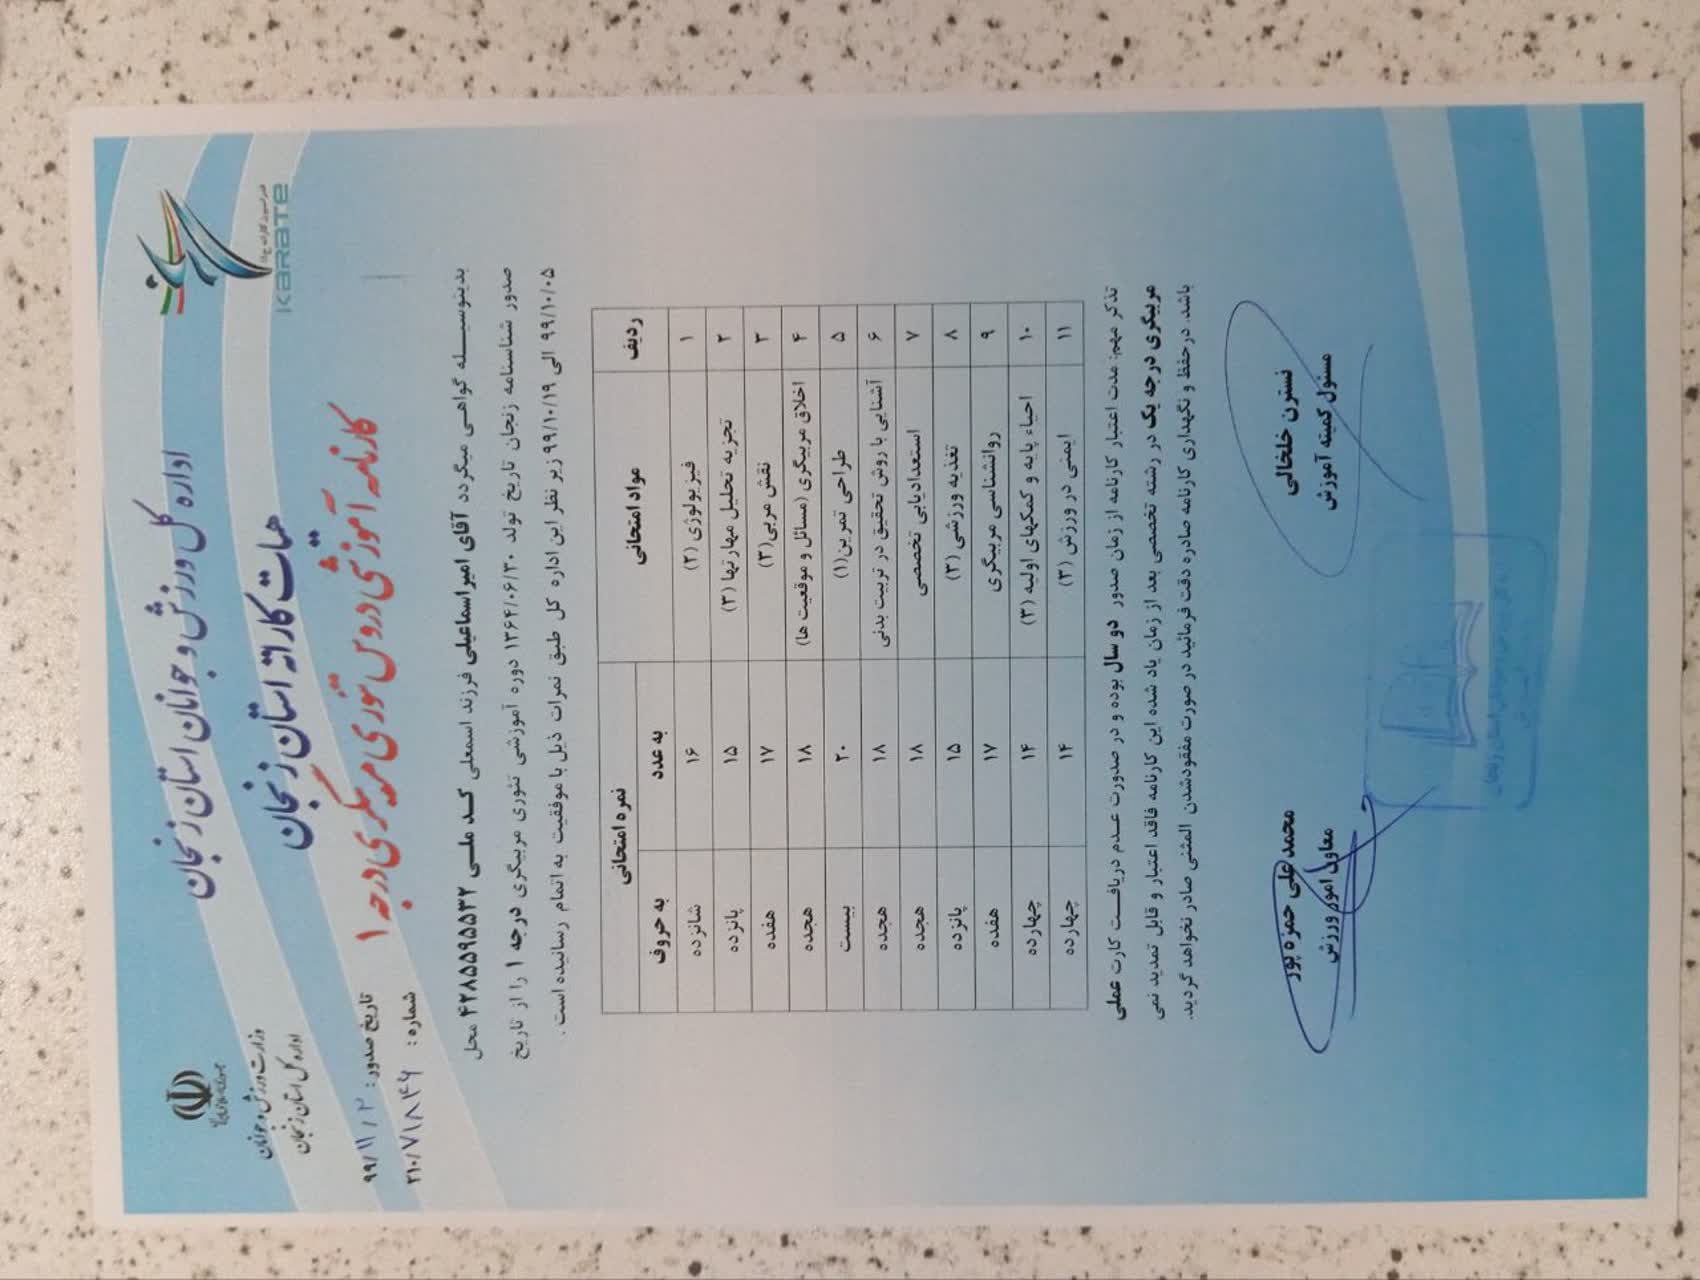 جمهوری اسلامی ایران
وزارت ورزش و جوانان
اداره کل استان زنجان
اداره کل ورزش و جوانان استان زنجان
هیات کاراته استان زنجان
کارنامه آموزشی دروس تئوری مربیگری درجه ۱
KARATE
تاریخ صدور: ۹۹/۱۱/۲
شماره: ۲۱۰/۷۱۸۴۶
بدینوسیله گواهی میگردد آقای امیر اسماعیلی فرزند اسمعلی کد ملی ۴۲۸۵۵۹۵۵۳۲ محل
صدور شناسنامه زنجان تاریخ تولد ۱۳۶۴/۰۶/۳۰ دوره آموزشی تئوری مربیگری درجه ۱ را از تاریخ
۹۹/۱۰/۰۵ الی ۹۹/۱۰/۱۹ زیر نظر این اداره کل طبق نمرات ذیل با موفقیت به اتمام رسانیده است.
ردیف مواد امتحانی نمره امتحانی
به عدد به حروف
۱ فیزیولوژی (۲) ۱۶ شانزده
۲ تجزیه تحلیل مهارتها (۳) ۱۵ پانزده
۳ نقش مربی (۳) ۱۷ هفده
۴ اخلاق مربیگری (مسائل و موقعیت ها) ۱۸ هجده
۵ طراحی تمرین (۱) ۲۰ بیست
۶ آشنایی با روش تحقیق در تربیت بدنی ۱۸ هجده
۷ استعدادیابی تخصصی ۱۸ هجده
۸ تغذیه ورزشی (۳) ۱۵ پانزده
۹ روانشناسی مربیگری ۱۷ هفده
۱۰ احیاء پایه و کمکهای اولیه (۳) ۱۴ چهارده
۱۱ ایمنی در ورزش (۳) ۱۴ چهارده
تذکر مهم: مدت اعتبار کارنامه از زمان صدور دو سال بوده و در صدورت عدم دریافت کارت عملی
مربیگری درجه یک در رشته تخصصی بعد از زمان یاد شده این کارنامه فاقد اعتبار و قابل تمدید نمی
باشد. درحفظ و نگهداری کارنامه صادره دقت فرمائید در صورت مفقودشدن المثنی صادر نخواهد گردید.
نسترن خلخالی
مسئول کمیته آموزش
محمد علی حمزه پور
معاون امور ورزش